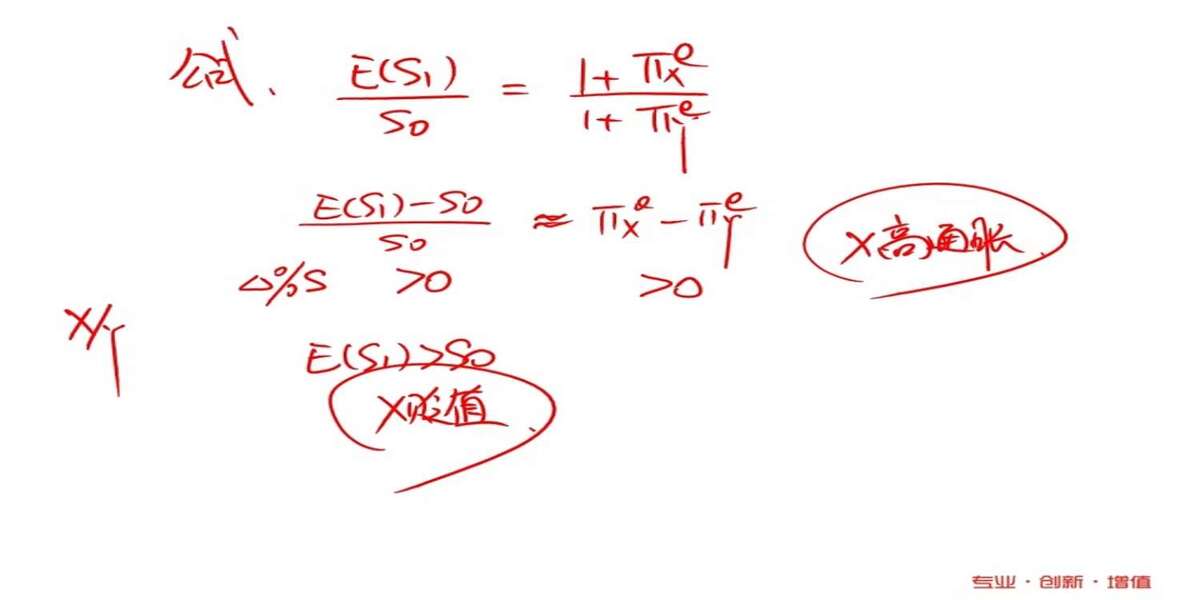 公式. E(S₁)/S₀ = (1+πₓᵉ)/(1+π_Yᵉ)
(E(S₁)-S₀)/S₀ ≈ πₓᵉ-π_Yᵉ X高通胀
△%S >0 >0
X/Y
E(S₁)>S₀
X贬值
专业·创新·增值